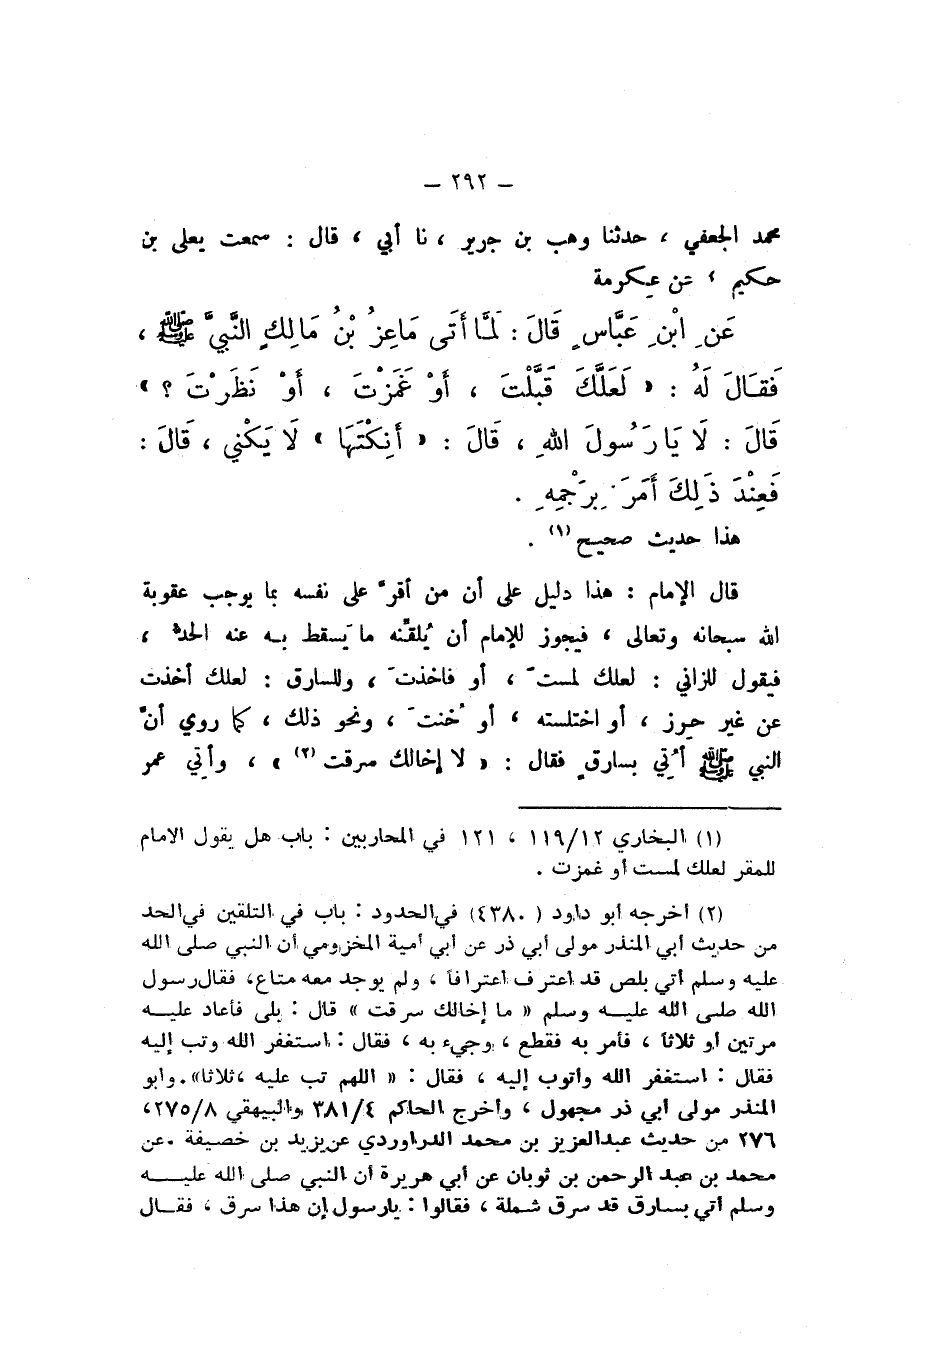 — ٢٩٢ —
محمد الجعفي ، حدثنا وهب بن جرير ، نا أبي ، قال : سمعت يعلى بن
حكيم ، عن عكرمة
عَنِ ابْنِ عَبَّاسٍ قَالَ : لَمَّا أَتَى مَاعِزُ بْنُ مَالِكٍ النَّبِيَّ ﷺ ،
فَقَالَ لَهُ : « لَعَلَّكَ قَبَّلْتَ ، أَوْ غَمَزْتَ ، أَوْ نَظَرْتَ ؟ »
قَالَ : لَا يَا رَسُولَ اللهِ ، قَالَ : « أَنِكْتَهَا » لَا يَكْنِي ، قَالَ :
فَعِنْدَ ذَلِكَ أَمَرَ بِرَجْمِهِ .
هذا حديث صحيح (١) .
قال الإمام : هذا دليل على أن من أقرَّ على نفسه بما يوجب عقوبة
الله سبحانه وتعالى ، فيجوز للإمام أن يُلقِّنه ما يَسقط بـه عنه الحدُّ ،
فيقول للزاني : لعلك لمستَ ، أو فاخذتَ ، وللسارق : لعلك أخذت
عن غير حرز ، أو اختلسته ، أو خُنتَ ، ونحو ذلك ، كما روي أنَّ
النبي ﷺ أُتي بسارقٍ فقال : « لا إخالك سرقت (٢) » ، وأتي عمر
(١) البخاري ١٢/١١٩ ، ١٢١ في المحاربين : باب هل يقول الامام
للمقر لعلك لمست أو غمزت .
(٢) أخرجه أبو داود ( ٤٣٨٠) في الحدود : باب في التلقين في الحد
من حديث أبي المنذر مولى أبي ذر عن أبي أمية المخزومي أن النبي صلى الله
عليه وسلم أتي بلص قد اعترف اعترافاً ، ولم يوجد معه متاع، فقال رسول
الله صلى الله عليـــه وسلم « ما إخالك سرقت » قال : بلى فأعاد عليـــه
مرتين أو ثلاثاً ، فأمر به فقطع ، وجيء به ، فقال : استغفر الله وتب إليه
فقال : استغفر الله وأتوب إليه ، فقال : « اللهم تب عليه ،ثلاثا». وأبو
المنذر مولى أبي ذر مجهول ، وأخرج الحاكم ٣٨١/٤ والبيهقي ٢٧٥/٨،
٢٧٦ من حديث عبدالعزيز بن محمد الدراوردي عن يزيد بن خصيفة ، عن
محمد بن عبد الرحمن بن ثوبان عن أبي هريرة أن النبي صلى الله عليـــه
وسلم أتي بسارق قد سرق شملة ، فقالوا : يارسول إن هذا سرق ، فقـــال